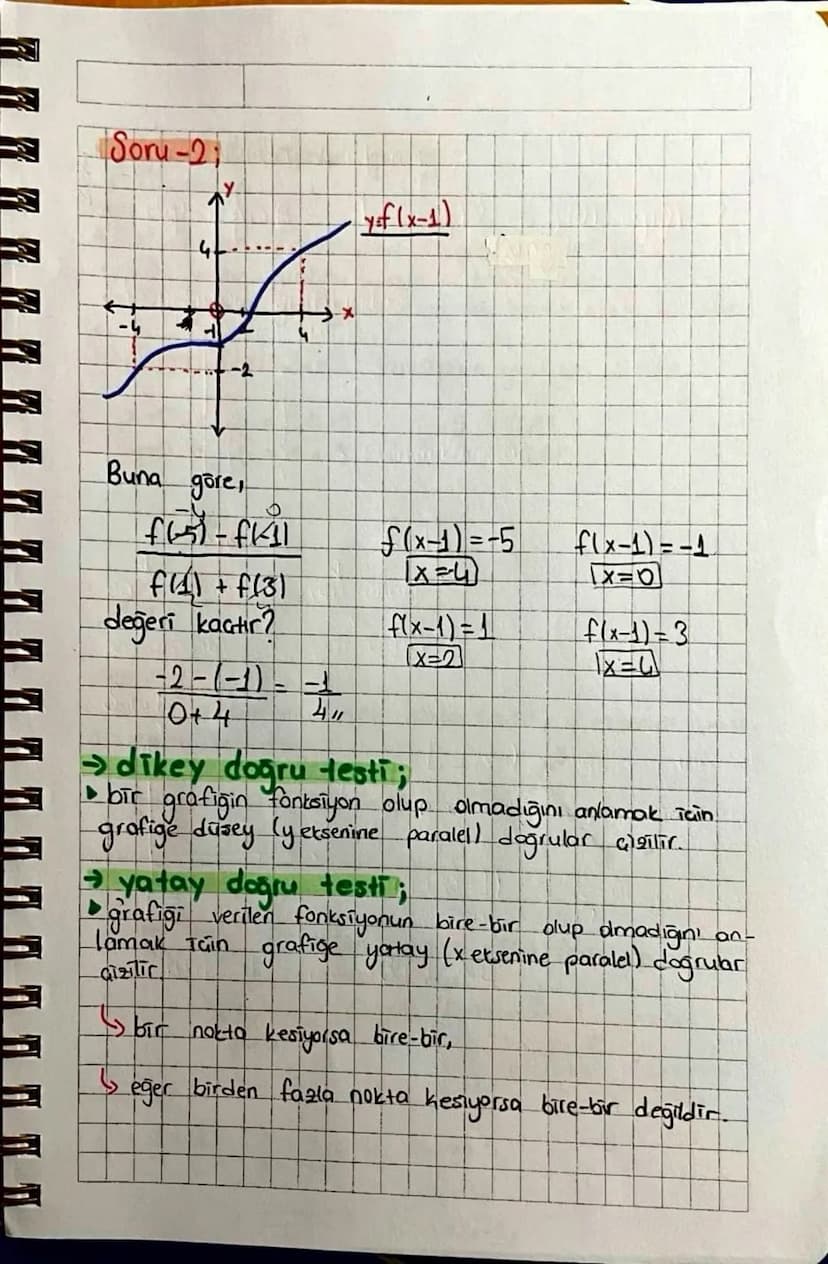 Soru-2;
y
y=f(x-1)
4
x
-4
-1
4
-2
Buna göre,
-4 0
f(-5) - f(-1)
f(1) + f(3)
2
değeri kaçtır?
f(x-1)=-5
x=4
f(x-1)=-1
x=0
f(x-1)=1
x=2
f(x-1)=3
x=4
-2-(-1) = -1
0+4 4//
→ dikey doğru testi;
▸ bir grafiğin fonksiyon olup olmadığını anlamak için
grafiğe düşey (y eksenine paralel) doğrular çizilir.
→ yatay doğru testi;
▸ grafiği verilen fonksiyonun bire-bir olup olmadığını an-
lamak için grafiğe yatay (x eksenine paralel) doğrular
çizilir.
↳ bir nokta kesiyorsa bire-bir,
↳ eğer birden fazla nokta kesiyorsa bire-bir değildir.